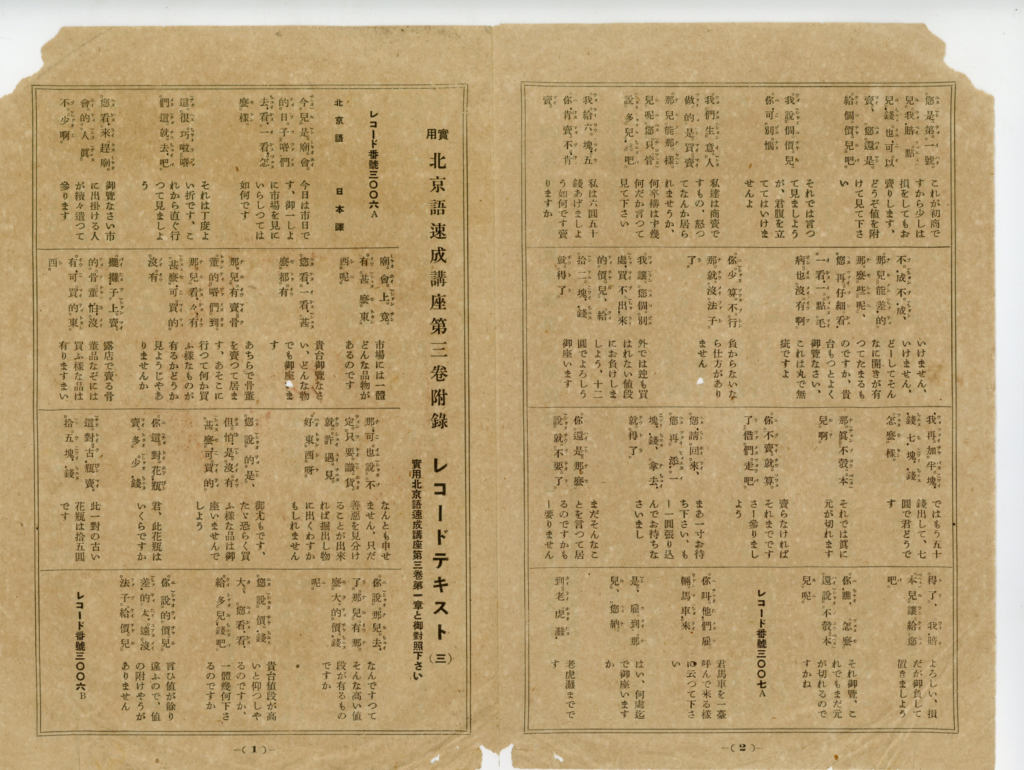 實用 北京語速成講座第三卷附錄 レコードテキスト(三)
實用北京語速成講座第三卷第一章と御對照下さい
レコード番號三〇〇六A
北京語 日本譯
今兒是廟會
的日子咱們
去看一看怎
麼樣
今日は市日で
す、御一しよ
に市場を見に
いらしつては
如何です
這很巧哎咱
們這就去吧
それは丁度よ
い折です、こ
れから直ぐ行
つて見ましよ
う
您看來趕廟
會的人眞
不少啊
御覽なさい市
に出掛ける人
が續々還つて
參ります
廟會上竟
有甚麼東
西呢
市場には一體
どんな品物が
あるのです
您看一看甚
麼都有
貴台御覽なさ
い、どんな物
でも御座いま
す
那兒有賣骨
董的咱們到
那兒看々有
甚麼可買的
沒有
あちらで骨董
を賣つて居ま
す、あそこに
行つて何か買
ふ樣なものが
有るかどうか
見ようじやあ
りませんか
攤攤子上賣
的骨董怕沒
有可買的東
西
露店で賣る骨
董品などには
買ふ樣な品は
有りますまい
那可也說不
定只要識貨
就許遇見
好東西呀
なんとも申せ
ません、只だ
善惡を見分け
ることが出來
れば掘出し物
に出くわすか
もしれません
您說的是、
但怕是沒有
甚麼可買的
御尤もです、
たゞ恐らく買
ふ樣な品は御
座いませんで
しよう
你這對花瓶
賣多少錢
君、此花瓶は
いくらですか
這對古瓶賣
拾五塊錢
此一對の古い
花瓶は拾五圓
です
你說那兒去
了那兒有那
麼大的價錢
呢
なんですつて
そんな高い値
段が有るもの
ですか
您說價錢
大、您看看、
給多兒錢吧
貴台値段が高
いと仰つしや
るのですか、
一體幾何下さ
るのですか
你說的價兒
差的太遠沒
法子給價兒
言ひ値が餘り
違ふので、値
の附けやうが
ありません
レコード番號三〇〇六B
—(1)—
您是第一號
兒我賠點
兒錢也可以
賣、您還是
給個價兒吧
これが初商で
すから少しは
損をしてもお
賣りします、
どうぞ値を附
けて見て下さ
い
我說個價兒
你可別惱
それでは言つ
て見ましよう
が、君腹を立
てゝはいけま
せんよ
我們生意人
做的是買賣
那兒能那樣
兒呢您只管
說多兒吧
私達は商賣で
すもの、怒つ
てなんか居ら
れませうか、
何卒構はず幾
何だか言つて
見て下さい
我給六塊五
你肯賣不肯
賣
私は六圓五十
錢あげましよ
う如何です賣
りますか
不成不成、
那兒能差的
那麼些呢、
您再仔細看
一看、一點毛
病也沒有啊
いけません、
いけません、
どーしてそん
なに開きが有
つてたまるも
のですか、貴
台もつとよく
御覽なさい、
これは丸で無
疵ですよ
你少算不行
那就沒法子
了
負からないな
ら仕方があり
ません
我讓您個別
處買不出來
的價兒、給
拾二塊錢
就得了
外では迚も買
はれない値段
にお負けしま
しよう、十二
圓でよろしう
御座います
我再加半塊
錢七塊錢
怎麼樣
ではもう五十
錢出して、七
圓で君どうで
す
那眞不彀本
兒啊
それでは眞に
元が切れます
你不賣就算
了偺們走吧
賣らなければ
それまでです
さー參りまし
よう
您請回來、
您再添一
塊錢、拿去
就得了
まあ一寸お待
ち下さい、も
一圓張り込
んでお持ちな
さいまし
你還是那麼
說就不要了
まだそんなこ
とを言つて居
るのですかも
ー要りません
得了、我賠
本兒讓給您
吧
よろしい、損
だが御負して
置きましよう
你瞧、怎麼
還說不彀本
了呢
それ御覽、こ
れでもまだ元
が切れるので
すかね
レコード番號三〇〇七A
你叫他們雇
輛馬車來
君馬車を一臺
呼んで來る樣
に云つて下さ
い
是、雇到那
兒、您納
はい、何處迄
で御座います
か
到老虎灘
老虎灘までで
す
—(2)—